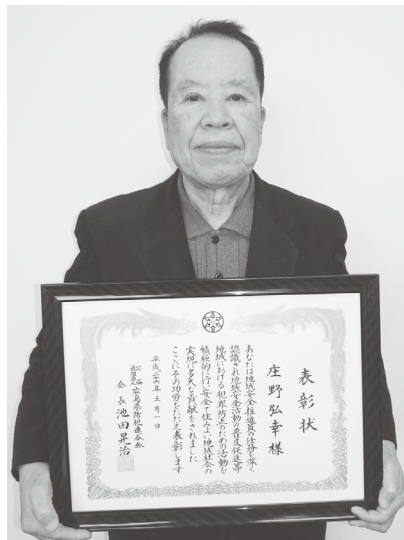 表彰状
庄野弘幸様
あなたは地域安全推進員の任務を深く
認識され地域安全活動の普及促進等
地域における犯罪防止のための活動を
積極的に行い安全で住みよい地域社会の
実現に多大な貢献をされました
ここにその功労をたたえ表彰します
平成二十六年三月一日
公益社団法人 広島県防犯連合会
会長 池田晃治